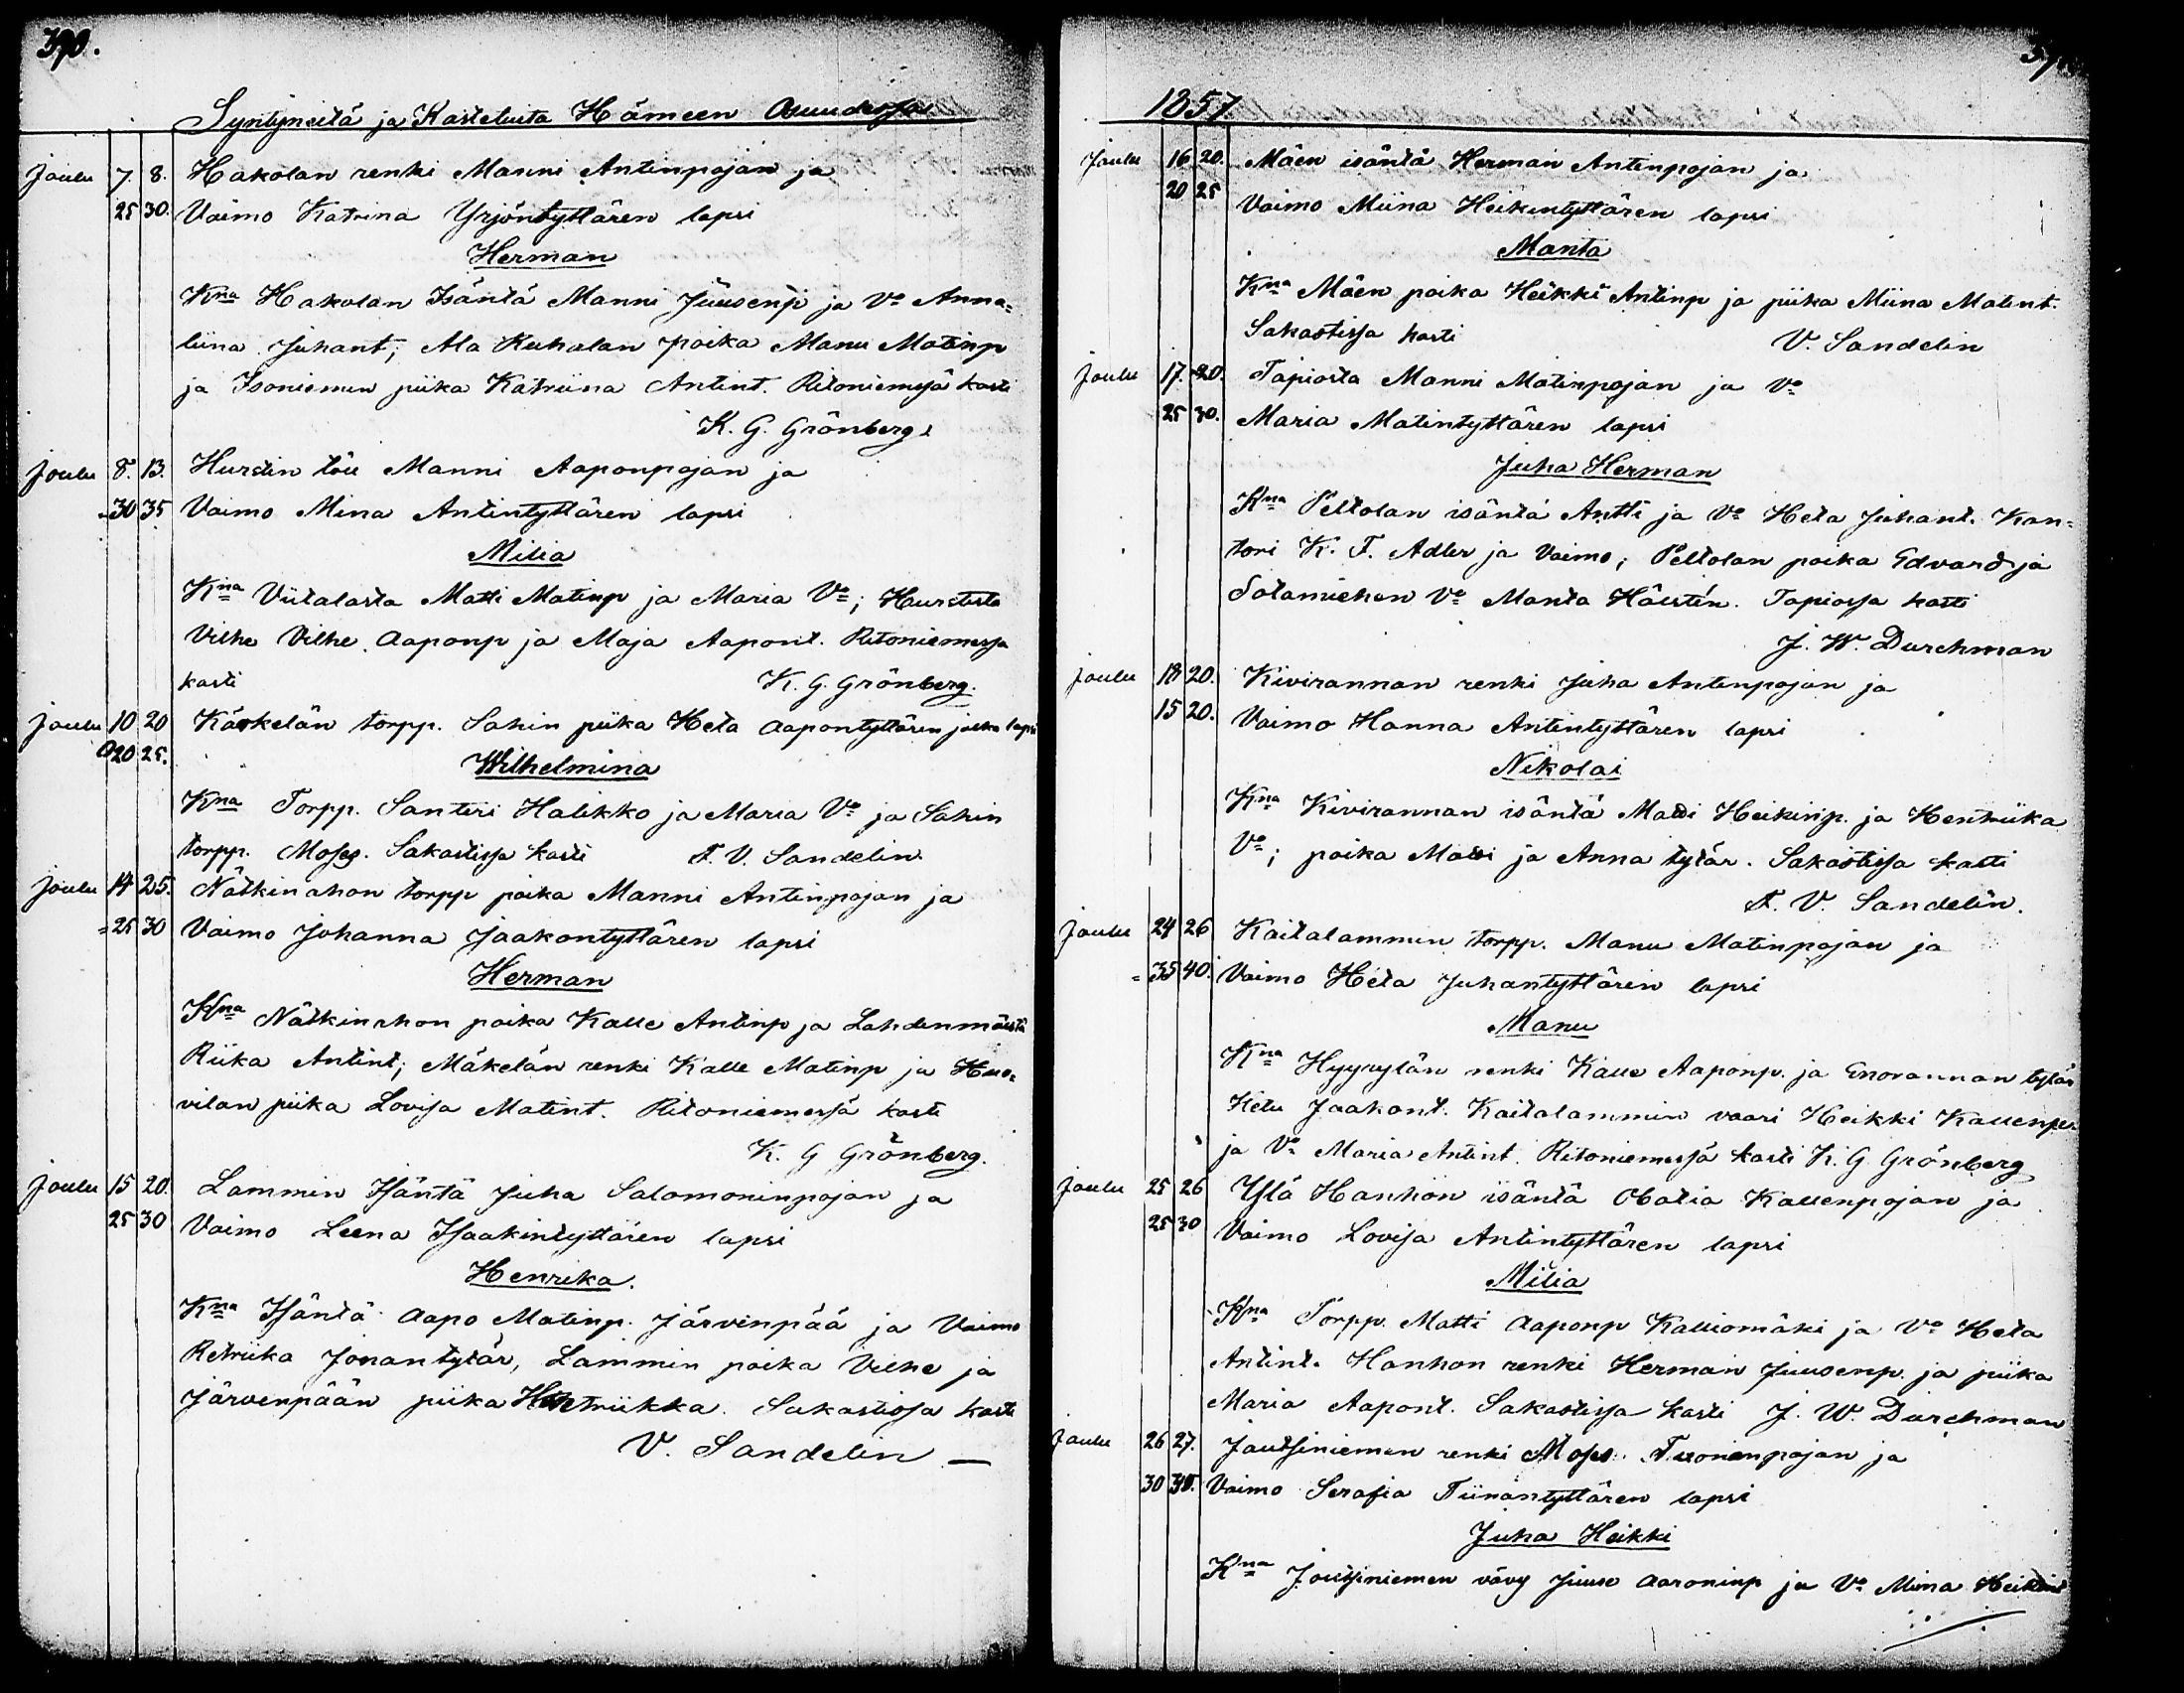 390.
Syntyneitä ja Kastetuita Hämeen Osuudessa
Joulu 7. 8. Hakolan renki Manni Antinpojan ja
25 30. Vaimo Katrina Yrjöntyttären lapsi
Herman
Kna Hakolan Isäntä Manni Juusenp ja Vo Anna=
liina Juhant; Ala Kuhalan poika Manu Matinp
ja Isoniemen piika Katriina Antint. Ritoniemessä kasti
K. G. Grönberg.
Joulu 8. 13. Hurstin töu Manni Aaponpojan ja
30 35 Vaimo Mina Antintyttären lapsi
Milia
Kna Viitalasta Matti Matinp ja Maria Vo; Hurstista
Vilhe Vilhe Aaponp ja Maja Aapont. Ritoniemessa
kasti K. G. Grönberg.
Joulu 10 20 Käskelän torpp. Sahin piika Heta Aapontyttären jalka lapsi
20 25. Wilhelmina
Kna Torpp. Santeri Halikko ja Maria Vo ja Sahin
torpp. Moses. Sakastissa kasti F. V. Sandelin.
Joulu 14 25. Nätkinahon torpp poika Manni Antinpojan ja
=25 30 Vaimo Johanna Jaakontyttären lapsi
Herman
Kna Nätkinahon poika Kalle Antinp ja Lahdenmäestä
Riika Antint; Mäkelän renki Kalle Matinp ja Huo=
vilan piika Lovisa Matint. Ritoniemessä kasti
K. G Grönberg.
Joulu 15 20. Lammin Isäntä Juha Salomoninpojan ja
25 30 Vaimo Leena Isaakintyttären lapsi
Henrika.
Kna Isäntä Aapo Matinp. Järvenpää ja Vaimo
Retriika Jonantytär, Lammin poika Vilhe ja
Järvenpään piika Hentriikka. Sakastissa kasti
V. Sandelin —
1857.
Joulu 16 20. Mäen isäntä Herman Antinpojan ja
20 25 Vaimo Miina Heikintyttären lapsi
Manta
Kna Mäen poika Heikki Antinp ja piika Miina Matint.
Sakastissa kasti V. Sandelin
Joulu 17. 20. Tapiosta Manni Matinpojan ja Vo
25 30. Maria Matintyttären lapsi
Juha Herman
Kna Peltolan isäntä Antti ja Vo Heta Juhant. Kan=
tori K. F. Adler ja Vaimo; Peltolan poika Edvard ja
Sotamiehen Vo Manta Hälstén. Tapiossa kasti
J. W. Durchman
Joulu 18 20. Kivirannan renki Juha Antinpojan ja
15 20. Vaimo Hanna Antintyttären lapsi
Nikolai
Kna Kivirannan isäntä Matti Heikinp. ja Hentriika
Vo; poika Matti ja Anna tytär. Sakastissa kasti
F. V. Sandelin.
Joulu 24 26 Kaitalammin torpp. Manu Matinpojan ja
=35 40. Vaimo Heta Juhantyttären lapsi
Manu
Kna Hyyrylän renki Kalle Aaponp. ja Enorannan tytär
Heta Jaakont. Kaitalammin vaari Heikki Kallenp
ja Vo Maria Antint. Ritoniemessä kasti K. G. Grönberg
Joulu 25 26 Ylä Hanhon isäntä Obatia Kallenpojan ja
25 30 Vaimo Lovisa Antintyttären lapsi
Milia
Kna Torpp. Matti Aaponp Kalliomäki ja Vo Heta
Antint. Hanhon renki Herman Juusenp. ja piika
Maria Aapont. Sakastissa kasti J. W. Durchman
Joulu 26 27. Joutsiniemen renki Moses Tuomenpojan ja
30 35. Vaimo Serafia Tiinantyttären lapsi
Juha Heikki
Kna Joutsiniemen vävy Juuse Aaroninp ja Vo Mina Heikint